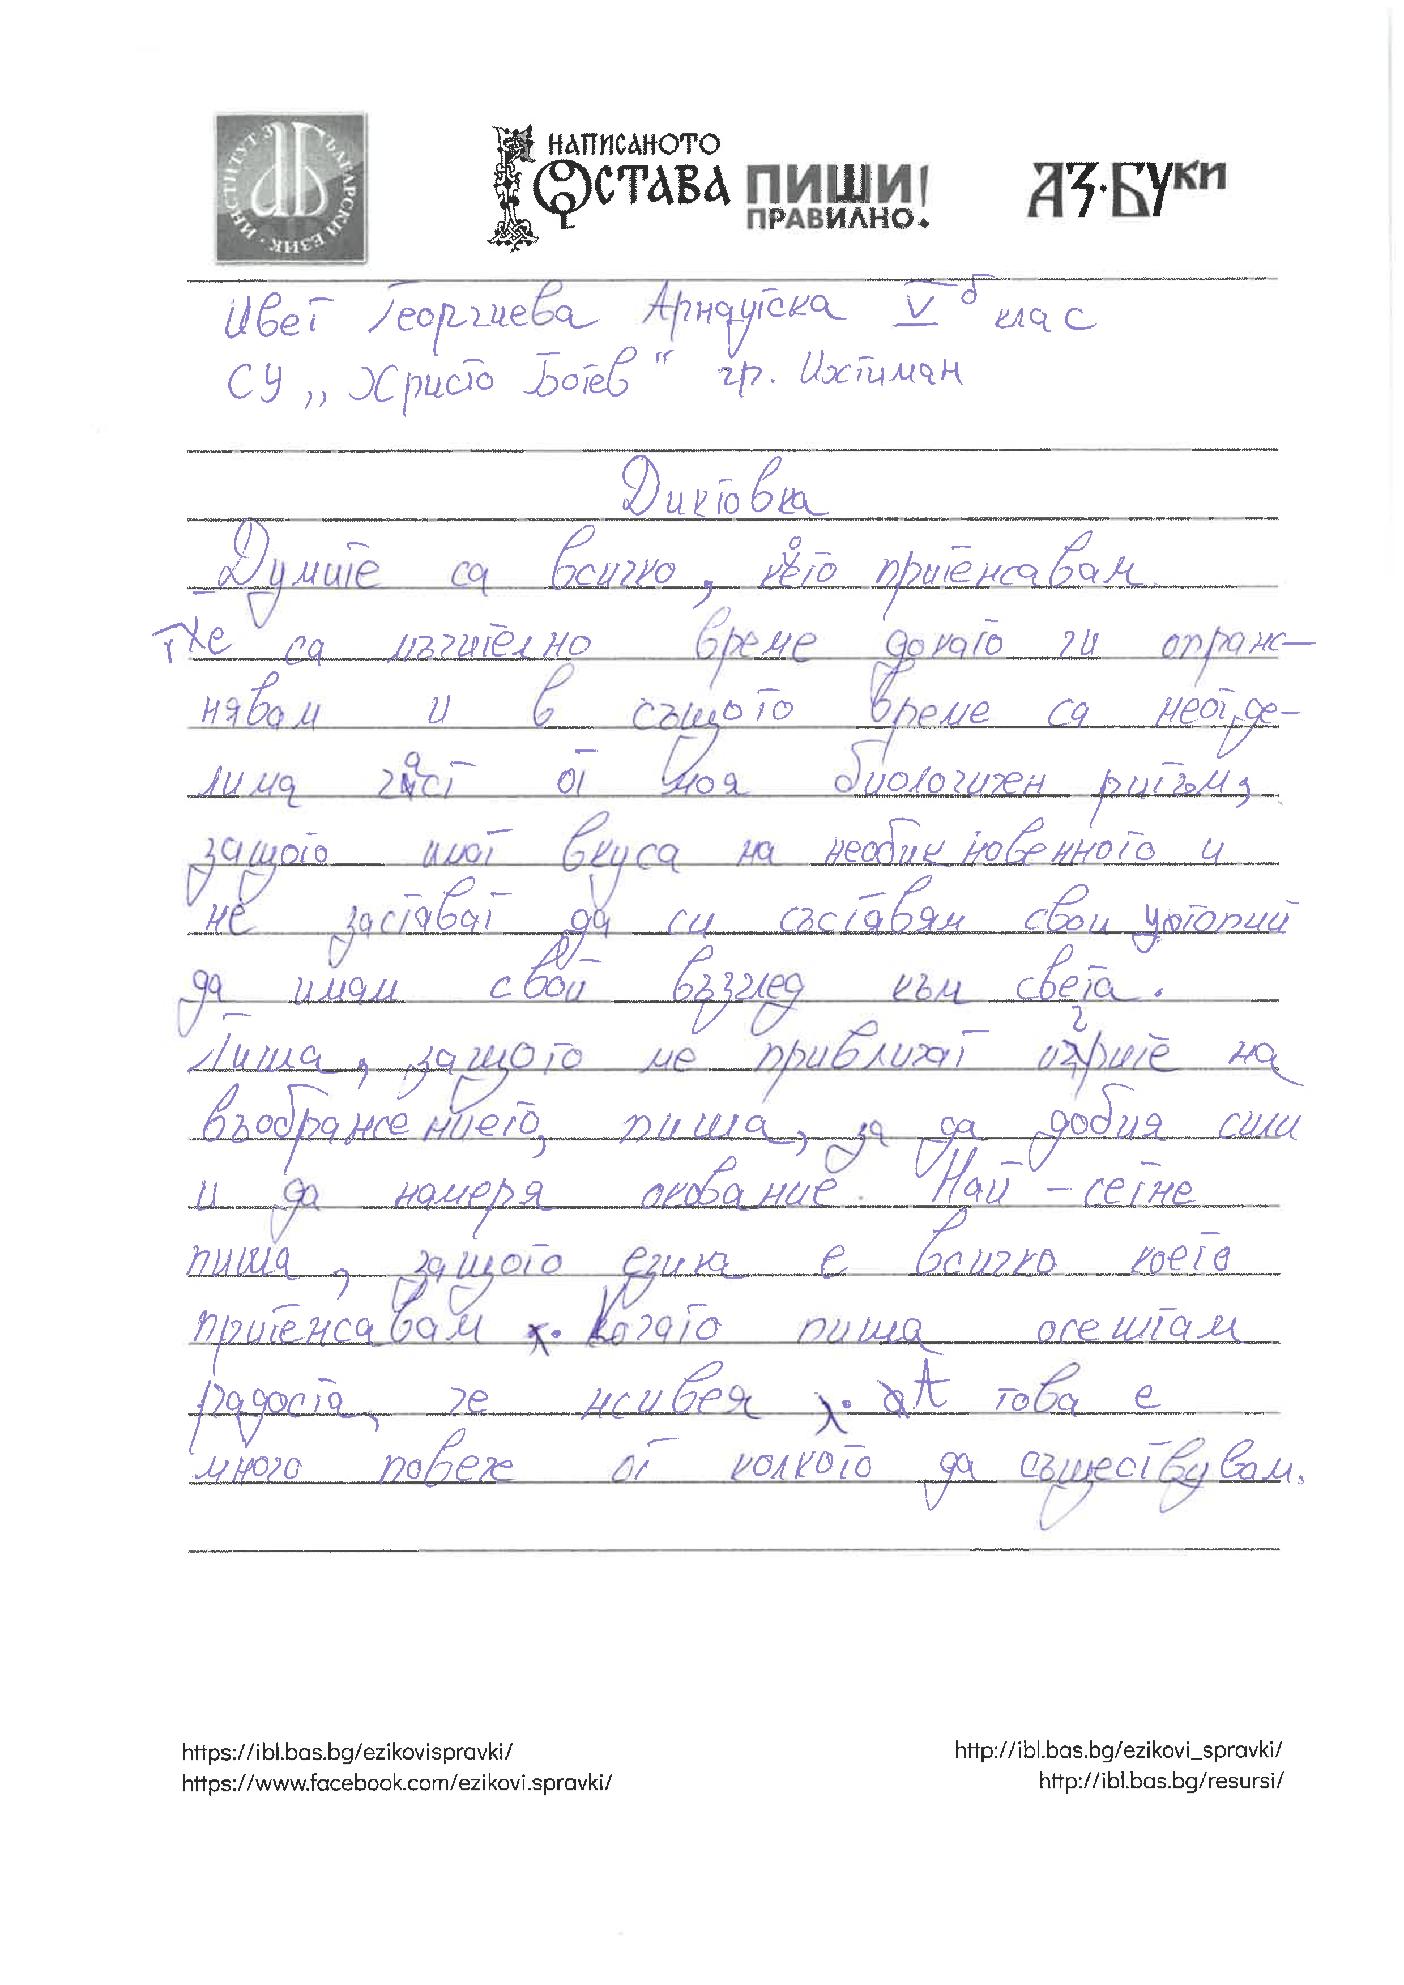 ИНСТИТУТ ЗА БЪЛГАРСКИ ЕЗИК
НАПИСАНОТО
ОСТАВА ПИШИ!
ПРАВИЛНО.
АЗ·БУКИ
Цвет Георгиева Арнаутска V б клас
СУ „Христо Ботев" гр. Ихтиман
Диктовка
Думите са всичко, което притенсавам.
Те са мъчително време докато ги опраж-
нявам и в същото време са неотде-
лима част от моя биологичен ритъм,
защото имат вкуса на необикновенното и
ме заставят да си съставям свои утопии
да имам свой възглед към света.
Пиша, защото ме приближат игрите на
въображението, пиша, за да добия сили
и да намеря окование. Най-сетне
пиша, защото езика е всичко което
притенсавам. Когато пиша осештам
радоста, че живея. А това е
много повече от колкото да съществувам.
https://ibl.bas.bg/ezikovispravki/ http://ibl.bas.bg/ezikovi_spravki/
https://www.facebook.com/ezikovi.spravki/ http://ibl.bas.bg/resursi/